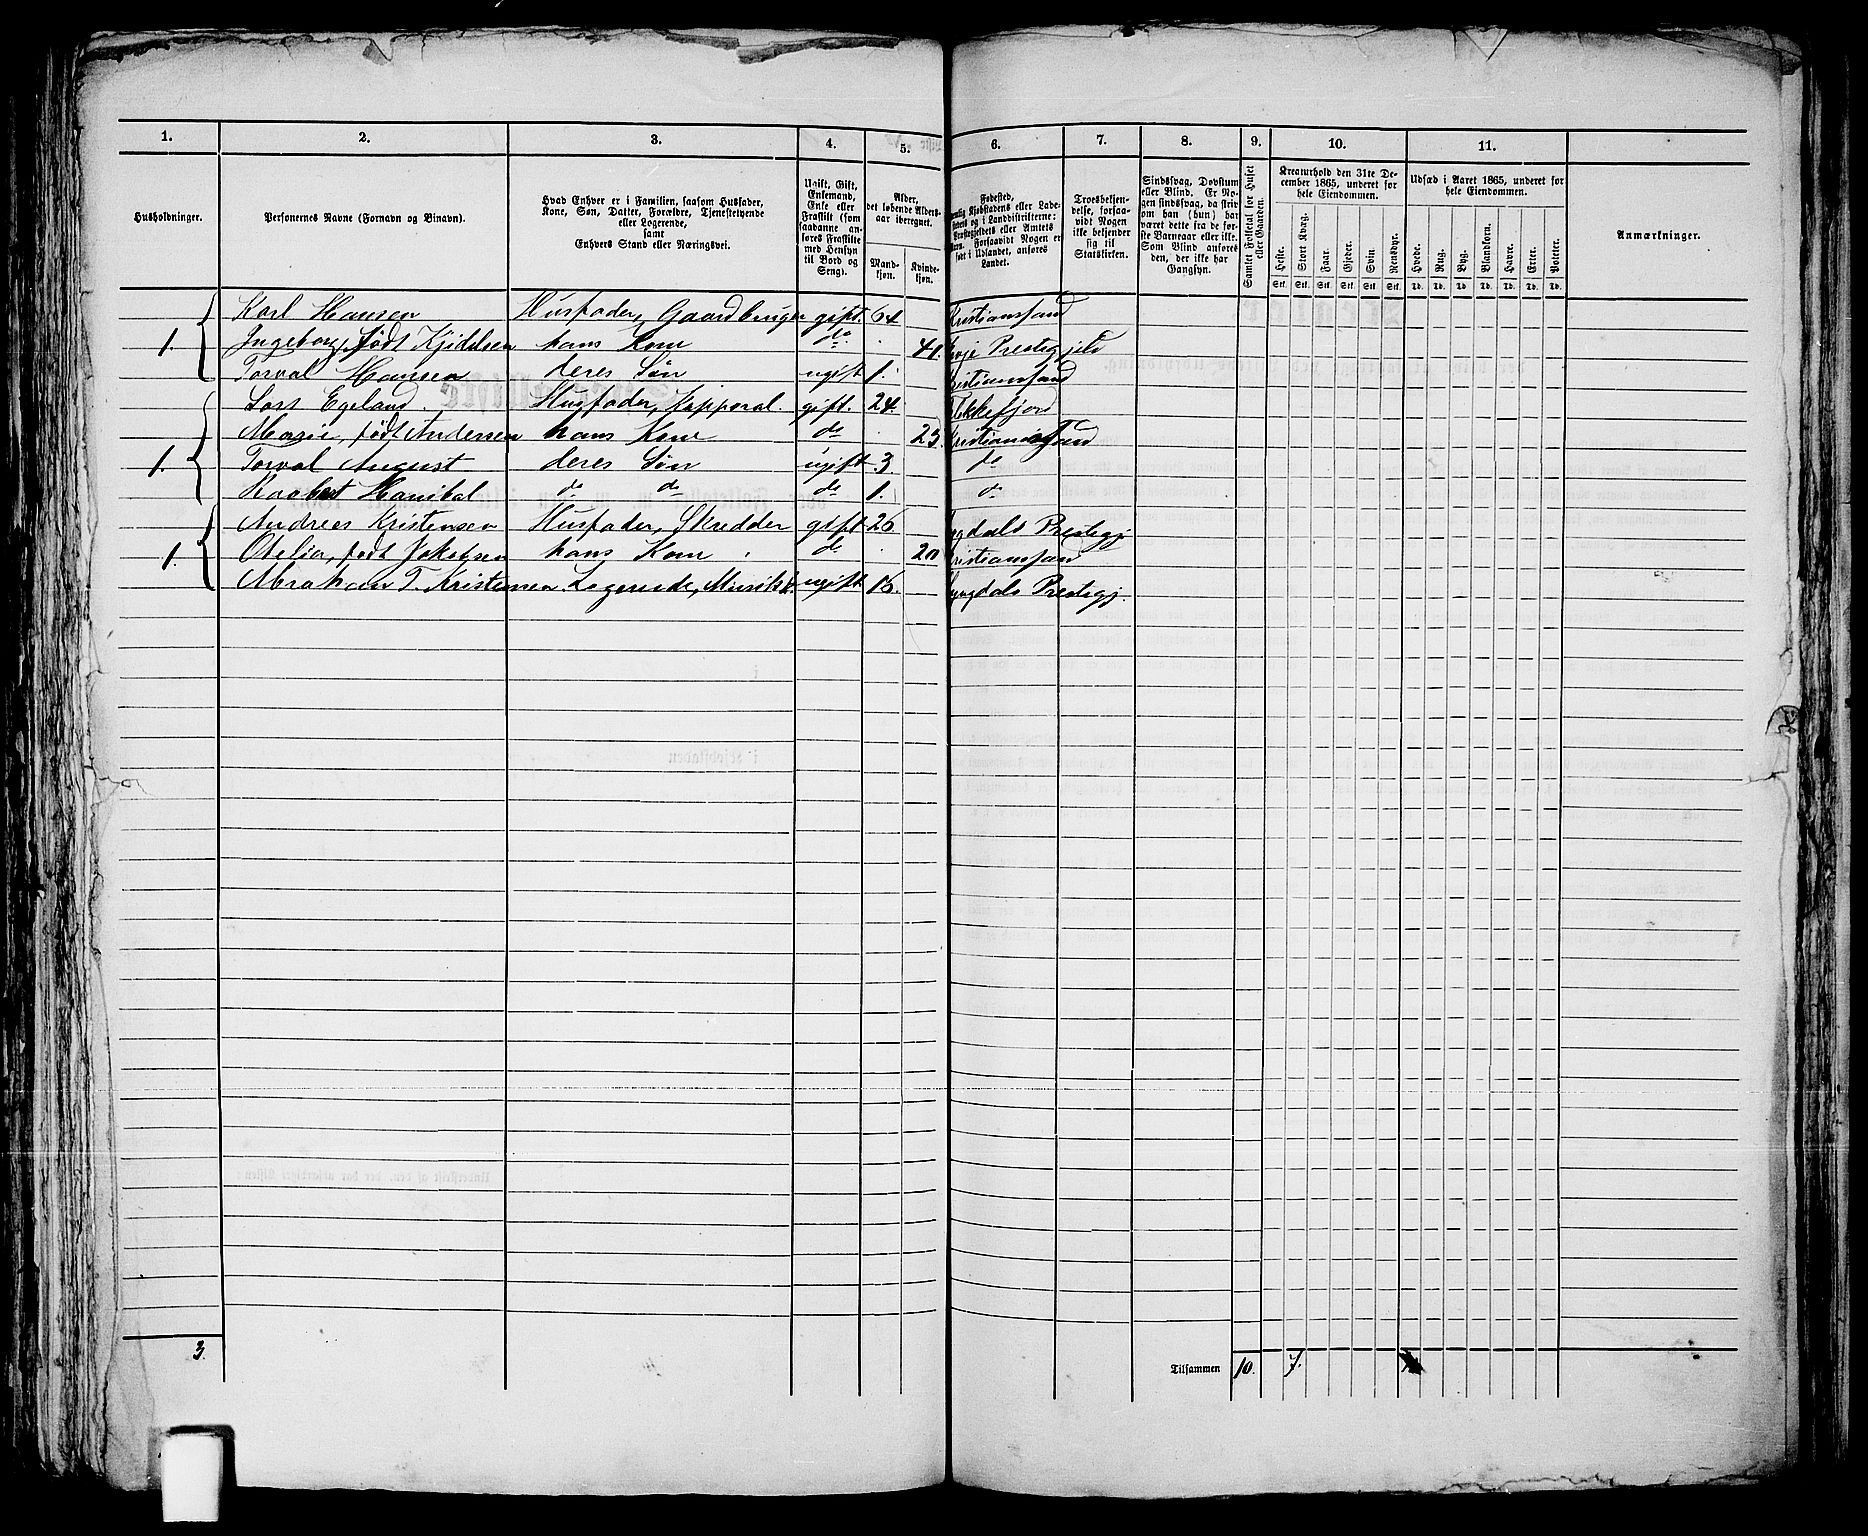 1.
2.
3.
4.
5.
6.
7.
8.
9.
10.
11.
Husholdninger.
Personernes Navne (Fornavn og Binavn).
Hvad Enhver er i Familien, saasom Husfader,
Kone, Søn, Datter, Forældre, Tjenestetyende
eller Logerende,
samt
Enhvers Stand eller Næringsvei.
Ugift, Gift,
Enkemand,
Enke eller
Fraskilt (som
saadanne an-
føres Fraskilte
med Hensyn
til Bord og
Seng).
Alder,
det løbende Alders-
aar iberegnet.
Mand-
kjøn.
Kvinde-
kjøn.
Fødested,
nemlig Kjøbstadens eller Lade-
stedets og i Landdistrikterne:
Præstegjeldets eller Amtets
Navn. Forsaavidt Nogen er
født i Udlandet, anføres
Landet.
Troesbekjen-
delse, forsaa-
vidt Nogen
ikke bekjender
sig til
Statskirken.
Sindssvag, Døvstum
eller Blind. Er No-
gen sindssvag, da skriv
om han (hun) har
været dette fra de før-
ste Barneaar eller ikke.
Som Blind anføres
den, der ikke har
Gangsyn.
Samlet Folketal for Huset
eller Gaarden.
Kreaturhold den 31te De-
cember 1865, underet for
hele Eiendommen.
Heste.
Stort Kvæg.
Faar.
Gjeder.
Svin.
Rensdyr.
Stk. Stk. Stk. Stk. Stk. Stk.
Udsæd i Aaret 1865, underet for
hele Eiendommen.
Hvede.
Rug.
Byg.
Blandkorn.
Havre.
Erter.
Poteter.
Td. Td. Td. Td. Td. Td. Td.
Anmærkninger.
Karl Hansen Husfader, Gaardbruger gift. 64. Kristianssand
1. Ingeborg, født Kjeldsen hans Kone do. 41. Evje Prestegjeld
Torval Hansen deres Søn ugift 1. Kristianssand
Lars Egeland. Husfader, Kapporal. gift. 24. Flekkefjord
Marie, født Andersen hans Kone do 23. Kristianssand
1. Torval August deres Søn ugift 3. do
Haabert Hanibal do do do 1. do
Andreas Kristensen Husfader, Skredder gift 26 Lyngdals Prestegj
1. Otelia, født Jakobsen hans Kone do 20 Kristianssand
Abraham T. Kristensen Logerende, ugift 16. Lyngdals Prestegj.
3.
Tilsammen 10. 7.